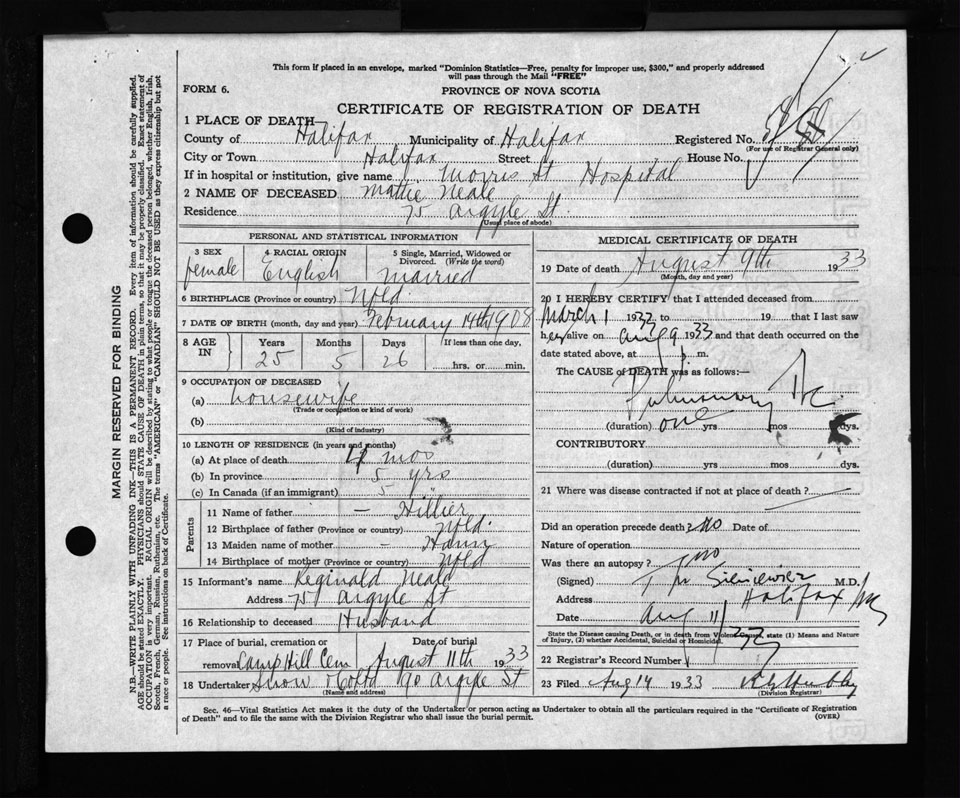 This form if placed in an envelope, marked "Dominion Statistics—Free, penalty for improper use, $300," and properly addressed
will pass through the Mail "FREE"
FORM 6.
PROVINCE OF NOVA SCOTIA
CERTIFICATE OF REGISTRATION OF DEATH
1 PLACE OF DEATH—
County of Halifax Municipality of Halifax Registered No.
(For use of Registrar General only)
City or Town Halifax Street House No.
If in hospital or institution, give name Morris St Hospital
2 NAME OF DECEASED Mattie Neale
Residence 75 Argyle St.
(Usual place of abode)
PERSONAL AND STATISTICAL INFORMATION
3 SEX 4 RACIAL ORIGIN 5 Single, Married, Widowed or
Divorced. (Write the word)
female English married
6 BIRTHPLACE (Province or country) Nfld
7 DATE OF BIRTH (month, day and year) February 14th 1908
8 AGE IN Years Months Days If less than one day,
25 5 26 hrs. or min.
9 OCCUPATION OF DECEASED
(a) housewife
(Trade or occupation or kind of work)
(b)
(Kind of industry)
10 LENGTH OF RESIDENCE (in years and months)
(a) At place of death 4 mos
(b) In province 5 yrs
(c) In Canada (if an immigrant) 5
Parents
11 Name of father — Hillier
12 Birthplace of father (Province or country) Nfld.
13 Maiden name of mother –
14 Birthplace of mother (Province or country) Nfld
15 Informant's name Reginald Neale
Address 75 Argyle St
16 Relationship to deceased Husband
17 Place of burial, cremation or Date of burial
removal Camp Hill Cem August 11th 1933
18 Undertaker Snow & Co Ltd 90 Argyle St
(Name and address)
MEDICAL CERTIFICATE OF DEATH
19 Date of death August 9th 1933
(Month, day and year)
20 I HEREBY CERTIFY that I attended deceased from
March 1 1933 to 19 that I last saw
her alive on Aug 9 1933 and that death occurred on the
date stated above, at p.m.
The CAUSE of DEATH was as follows:—
Pulmonary Tbc
(duration) one yrs mos dys.
CONTRIBUTORY
(duration) yrs mos dys.
21 Where was disease contracted if not at place of death?
Did an operation precede death? no Date of
Nature of operation
Was there an autopsy? no
(Signed) T M Sieniewicz M.D.
Address Halifax NS
Date Aug 11/33
State the Disease causing Death, or in death from Violent Causes, state (1) Means and Nature
of Injury, (2) whether Accidental, Suicidal or Homicidal.
22 Registrar's Record Number
23 Filed Aug 14 1933
(Division Registrar)
Sec. 46—Vital Statistics Act makes it the duty of the Undertaker or person acting as Undertaker to obtain all the particulars required in the "Certificate of Registration
of Death" and to file the same with the Division Registrar who shall issue the burial permit.
(OVER)
MARGIN RESERVED FOR BINDING
N.B.—WRITE PLAINLY WITH UNFADING INK—THIS IS A PERMANENT RECORD. Every item of information should be carefully supplied.
AGE should be stated EXACTLY. PHYSICIANS should STATE CAUSE OF DEATH in plain terms, so that it may be properly classified. Exact statement of
OCCUPATION is very important. RACIAL ORIGIN will be described by stating to what people or tongue the deceased person belonged, whether English, Irish,
Scotch, French, German, Russian, Ruthenian, etc. The terms "AMERICAN" or "CANADIAN" SHOULD NOT BE USED as they express citizenship but not
a race or people. See instructions on back of Certificate.